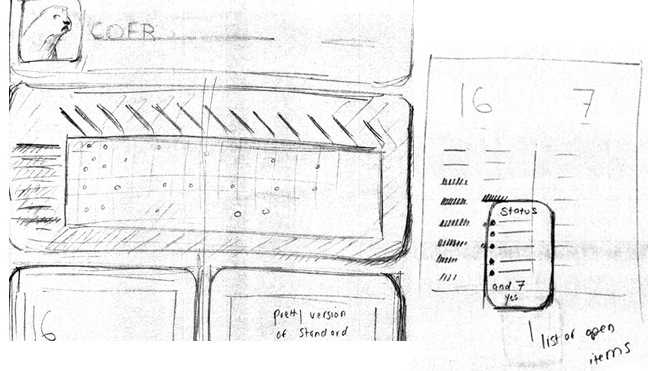 COER
16
pretty version
of Standard
16 7
Status
and 7
yes
list of open
items